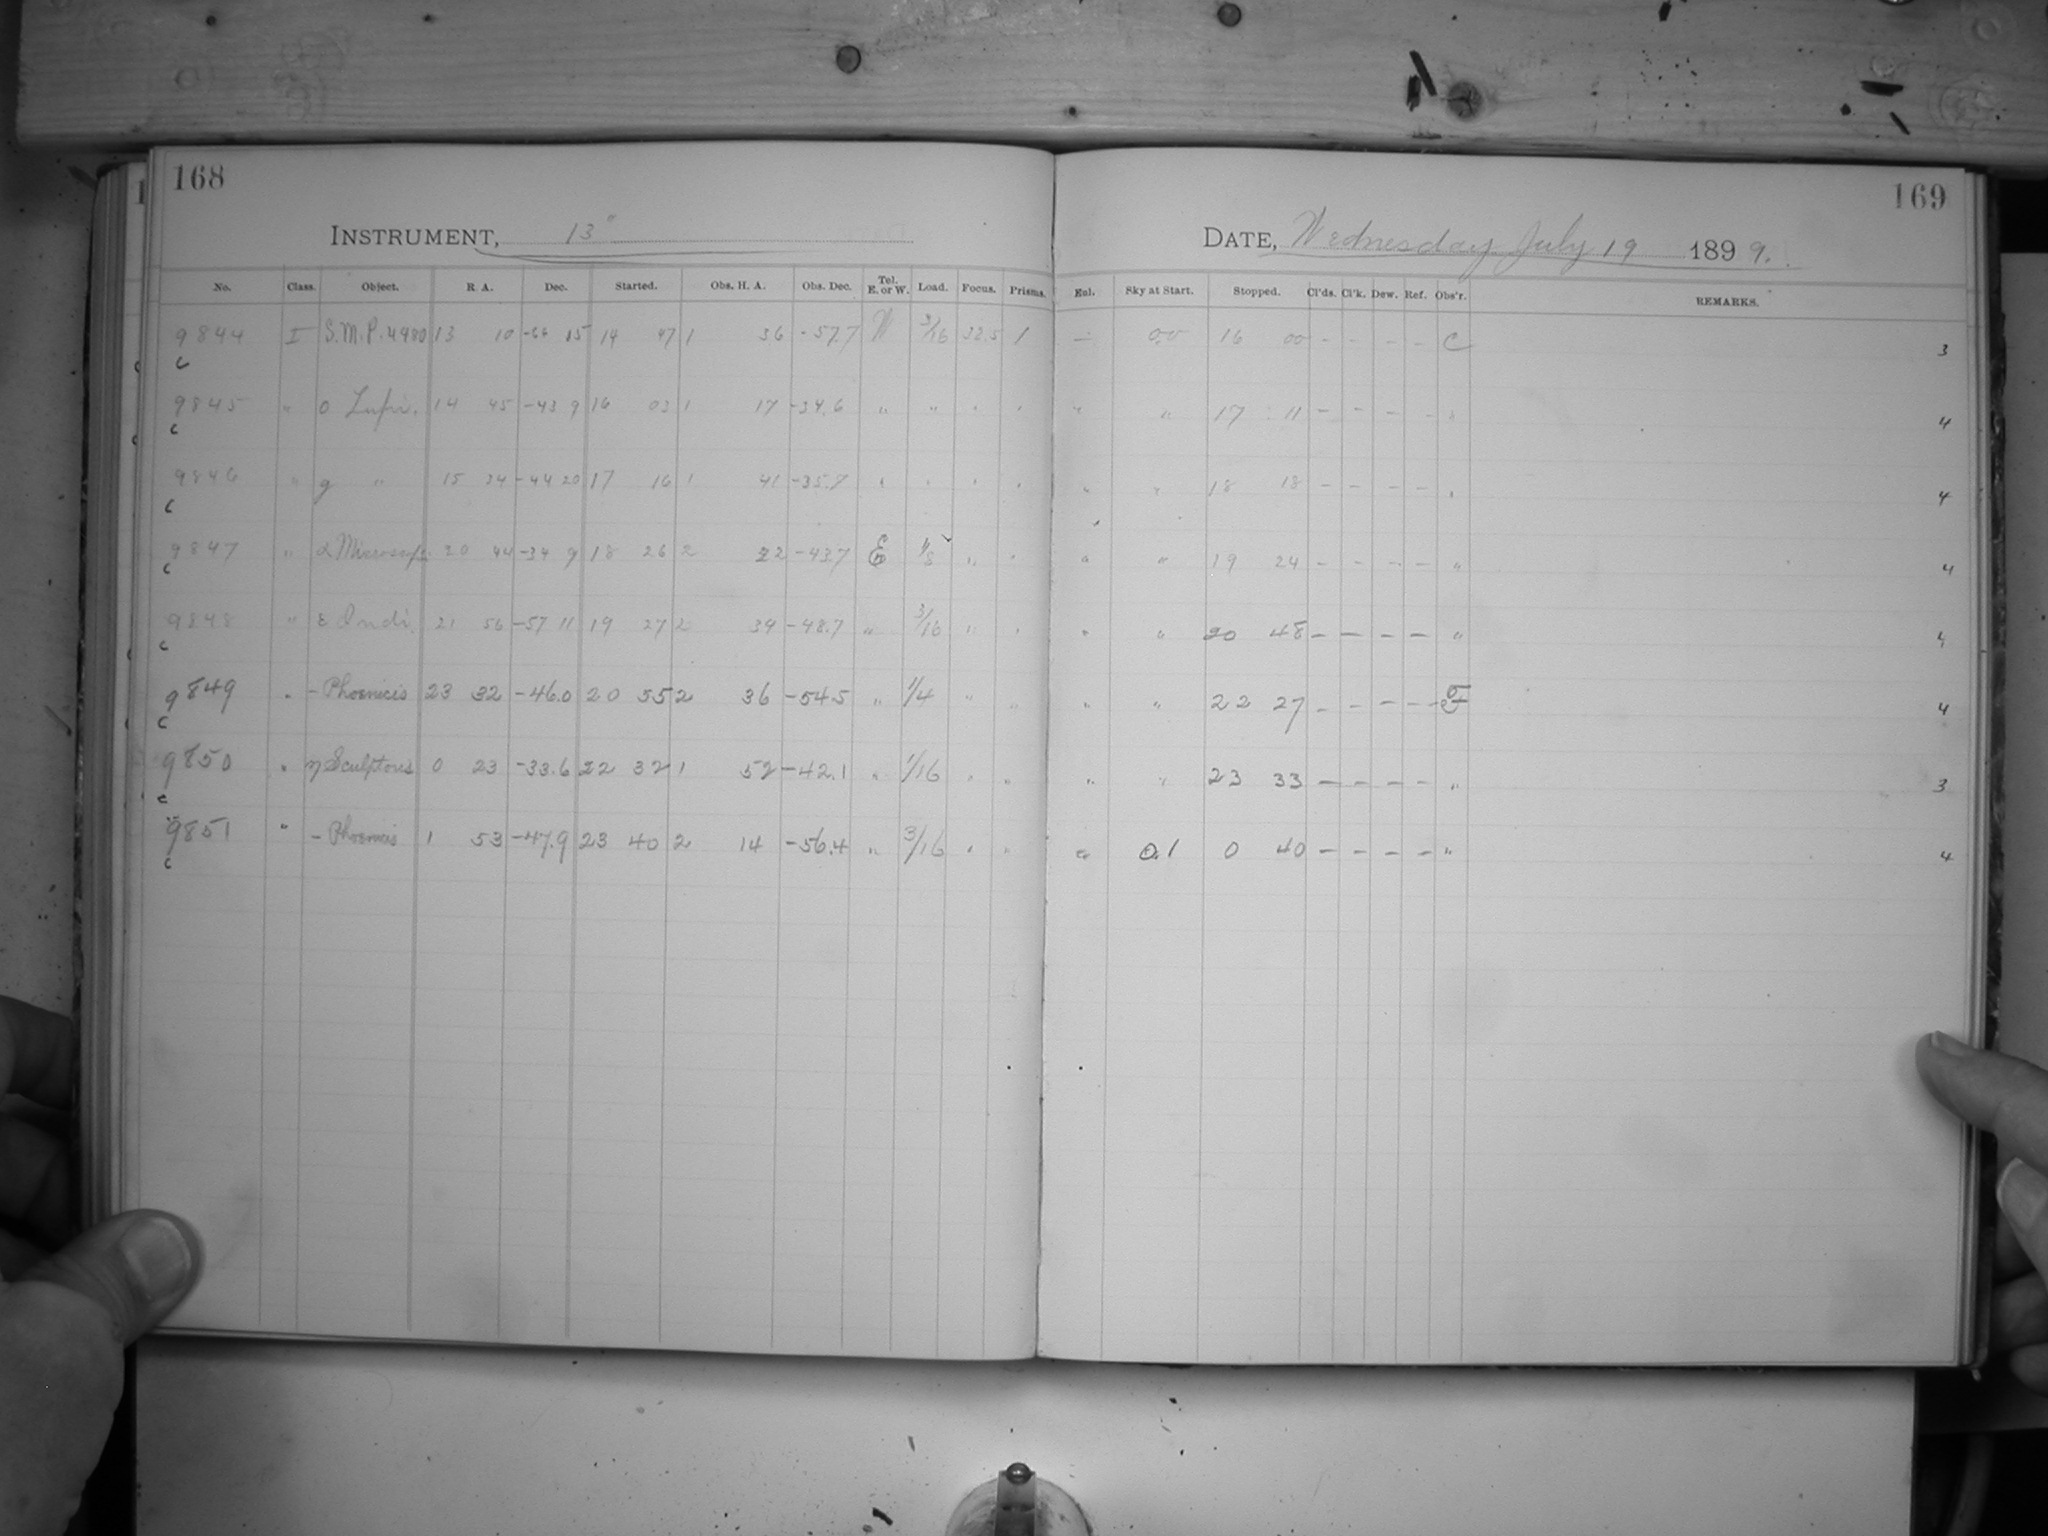 168
INSTRUMENT, 13"
No. Class. Object. R. A. Dec. Started. Obs. H. A. Obs. Dec. Tel. E. or W. Load. Focus. Prisms.
9844 I S.M.P. 4980 13 10 -66 15 14 47 1 36 -57.7 W 3/16 32.5 1
c
9845 " o Lupi. 14 45 -43 9 16 03 1 17 -34.6 " " " "
c
9846 " g " 15 34 -44 20 17 16 1 41 -35.7 " " " "
c
9847 " α Microscopi 20 44 -34 9 18 26 2 22 -43.7 E 1/8 " "
c
9848 " ε Indi. 21 56 -57 11 19 27 2 34 -48.7 " 3/16 " "
c
9849 " - Phoenicis 23 32 -46.0 20 55 2 36 -54.5 " 1/4 " "
c
9850 " η Sculptoris 0 23 -33.6 22 32 1 52 -42.1 " 1/16 " "
c
9851 " - Phoenicis 1 53 -47.9 23 40 2 14 -56.4 " 3/16 " "
c
169
DATE, Wednesday July 19 1899.
Enl. Sky at Start. Stopped. Cl'ds. Cl'k. Dew. Ref. Obs'r. REMARKS.
- 0.0 16 00 - - - - C 3
" " 17 11 - - - - " 4
" " 18 18 - - - - " 4
" " 19 24 - - - - " 4
" " 20 48 - - - - " 4
" " 22 27 - - - - F 4
" " 23 33 - - - - " 3
" 0.1 0 40 - - - - " 4